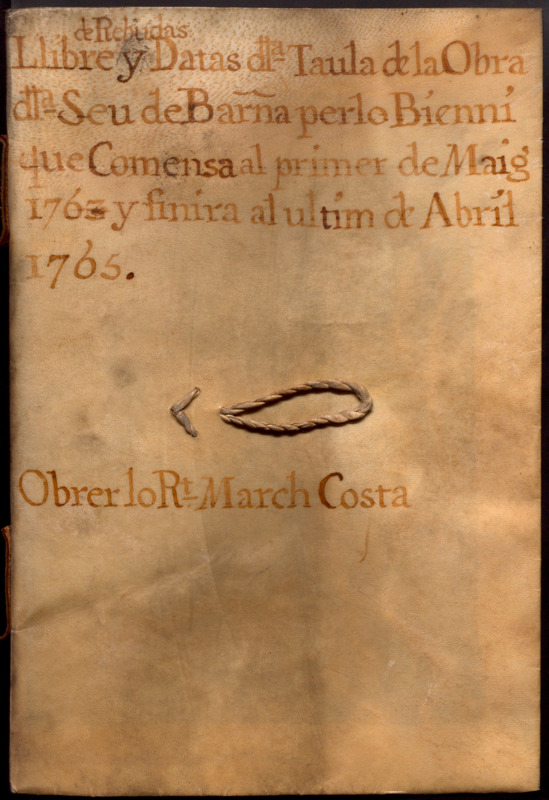 de Rebudas
Llibre y Datas dlla. Taula de la Obra
dlla. Seu de Barña per lo Bienni
que Comensa al primer de Maig
1763 y finira al ultim de Abril
1765.
Obrer lo Rt. March Costa